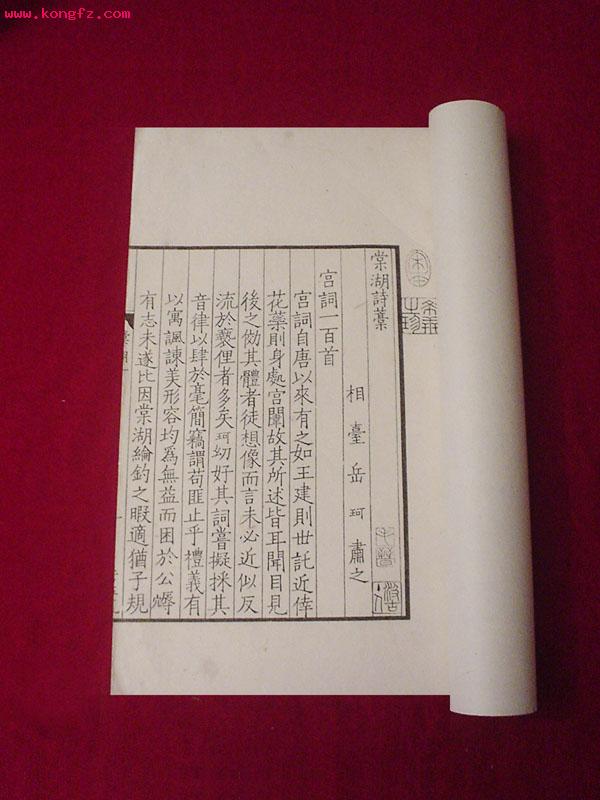 www.kongfz.com
棠湖詩藁
相臺岳珂肅之
宮詞一百首
宮詞自唐以來有之如王建則世託近倖
花蘂則身處宮闈故其所述皆耳聞目見
後之効其體者徒想像而言未必近似反
流於褻俚者多矣珂幼好其詞嘗擬采其
音律以肆於毫簡竊謂苟匪止乎禮義有
以寓諷諫美形容均爲無益而困於公
有志未遂比因棠湖綸釣之暇適猶子規